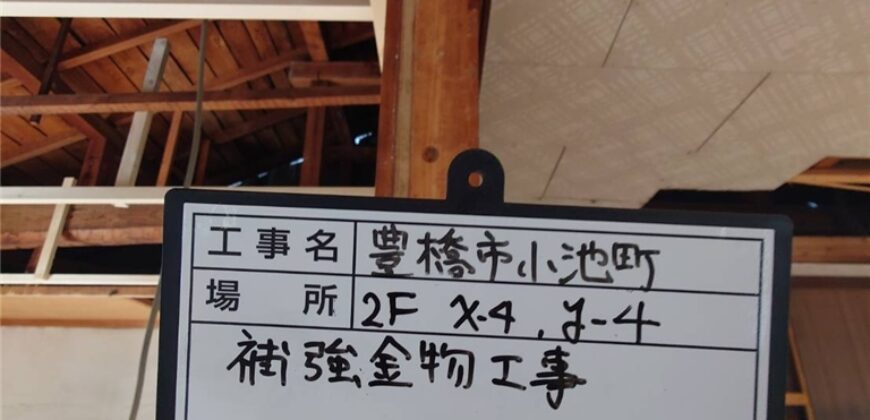 工事名 豊橋市小池町
場所 2F X-4, y-4
補強金物工事